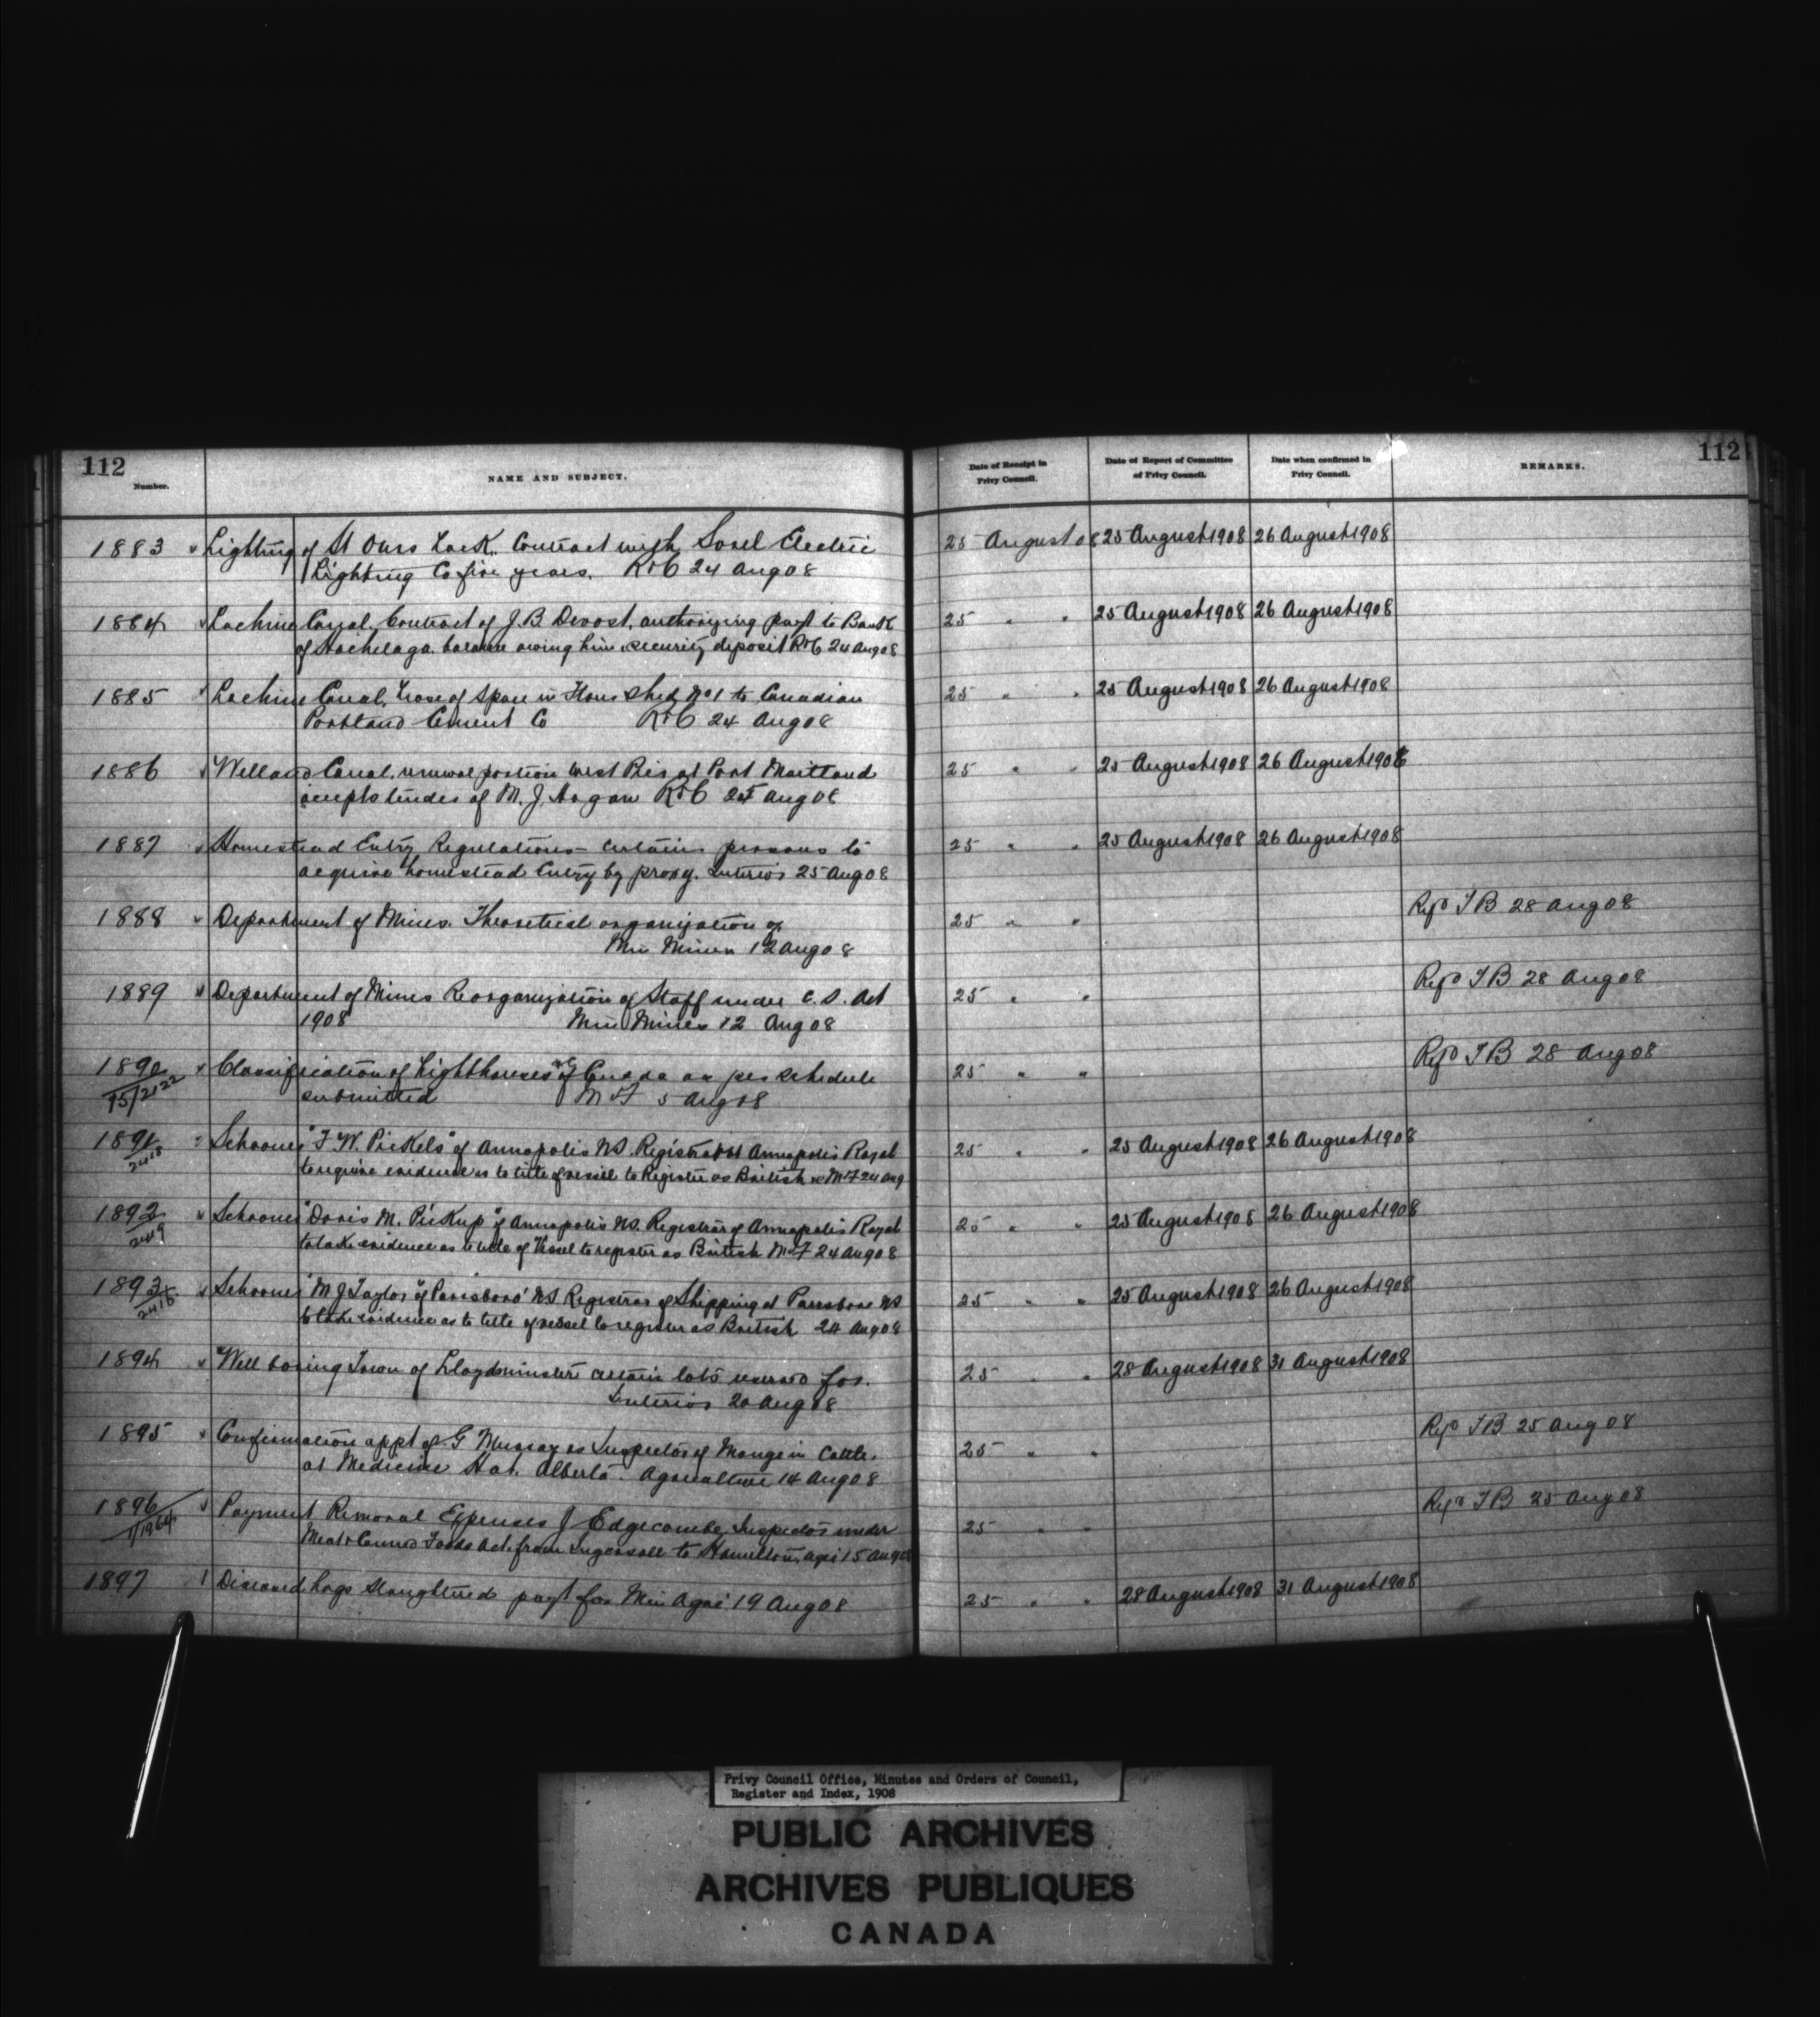 112
Number.
NAME AND SUBJECT.
Date of Receipt in Privy Council.
Date of Report of Committee of Privy Council.
Date when confirmed in Privy Council.
REMARKS.
112
1883 Lighting of St Ours Lock. Contract with Sorel Electric 25 August 08 25 August 1908 26 August 1908
Lighting Co five years. R&C 24 Aug 08
1884 Lachine Canal. Contract of J. B. Devost, authorizing payt to Bank 25 " " 25 August 1908 26 August 1908
of Hochelaga balance owing him & security deposit R&C 24 Aug 08
1885 Lachine Canal. Lease of Space in Flour Shed No 1 to Canadian 25 " " 25 August 1908 26 August 1908
Portland Cement Co R&C 24 Aug 08
1886 Welland Canal. renewal portion West Pier at Port Maitland 25 " " 25 August 1908 26 August 1908
accepts tender of M. J. Hogan R&C 24 Aug 08
1887 Homestead Entry Regulations - certain persons to 25 " " 25 August 1908 26 August 1908
acquire homestead Entry by proxy. Interior 25 Aug 08
1888 Department of Mines. Theoretical organization of 25 " " Rep T B 28 Aug 08
Min Mines 12 Aug 08
1889 Department of Mines Reorganization of Staff under C. S. Act 25 " " Rep T B 28 Aug 08
1908 Min Mines 12 Aug 08
1890 Classification of Lighthouses of Canada as per schedule 25 " " Rep T B 28 Aug 08
15/2122 submitted M&F 5 Aug 08
1891 Schooner "F. W. Pickels" of Annapolis NS. Registrar at Annapolis Royal 25 " " 25 August 1908 26 August 1908
2418 to require evidence as to title of vessel to Register as British M&F 24 Aug
1892 Schooner "Doris M. Pickup" of Annapolis NS. Registrar of Annapolis Royal 25 " " 25 August 1908 26 August 1908
2419 to take evidence as to title of Vessel to register as British M&F 24 Aug 08
1893 Schooner "M J Taylor" of Parrsboro' NS Registrar of Shipping at Parrsboro NS 25 " " 25 August 1908 26 August 1908
2416 to take evidence as to title of vessel to register as British 24 Aug 08
1894 Well boring Town of Lloydminster certain lots reserved for. 25 " " 28 August 1908 31 August 1908
Interior 20 Aug 08
1895 Confirmation appt of G Murray as Inspector of Mange in Cattle. 25 " " Rep T B 25 Aug 08
at Medicine Hat. Alberta. Agriculture 14 Aug 08
1896 Payment Removal Expenses J Edgecombe, Inspector under 25 " " Rep T B 25 Aug 08
1/1964 Meat & Canned Foods Act. from Ingersoll to Hamilton, Agri 15 Aug 08
1897 Diseased hogs slaughtered payt for Min Agri 19 Aug 08 25 " " 28 August 1908 31 August 1908
Privy Council Office, Minutes and Orders of Council,
Register and Index, 1908
PUBLIC ARCHIVES
ARCHIVES PUBLIQUES
CANADA